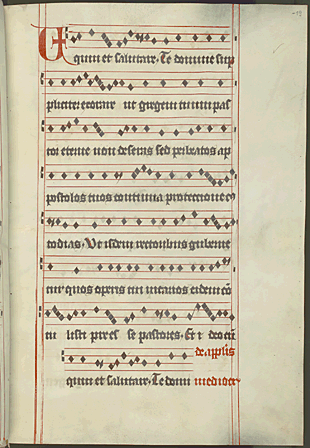 Equum et salutare. Te domine sup
pliciter exorare ut gregem tuum pas
tor eterne non deseras sed per beatos ap
postolos tuos continua protectione cus
todias. Ut isdem rectoribus guberne
tur quos operis tui vicarios eidem con
tu listi prees se pastores. Et i deo cum
de aplis
quum et salutare. Te domi